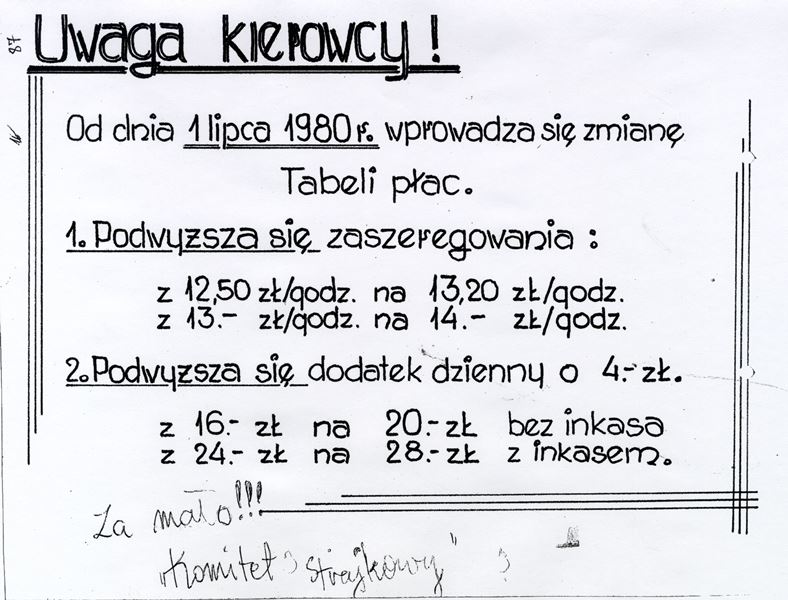 87
Uwaga kierowcy!
Od dnia 1 lipca 1980 r. wprowadza się zmianę
Tabeli płac.
1. Podwyższa się zaszeregowania :
z 12,50 zł/godz. na 13,20 zł/godz.
z 13.- zł/godz. na 14.- zł/godz.
2. Podwyższa się dodatek dzienny o 4.- zł.
z 16.- zł na 20.- zł bez inkasa
z 24.- zł na 28.- zł z inkasem.
Za mało!!!
"Komitet Strajkowy" ?